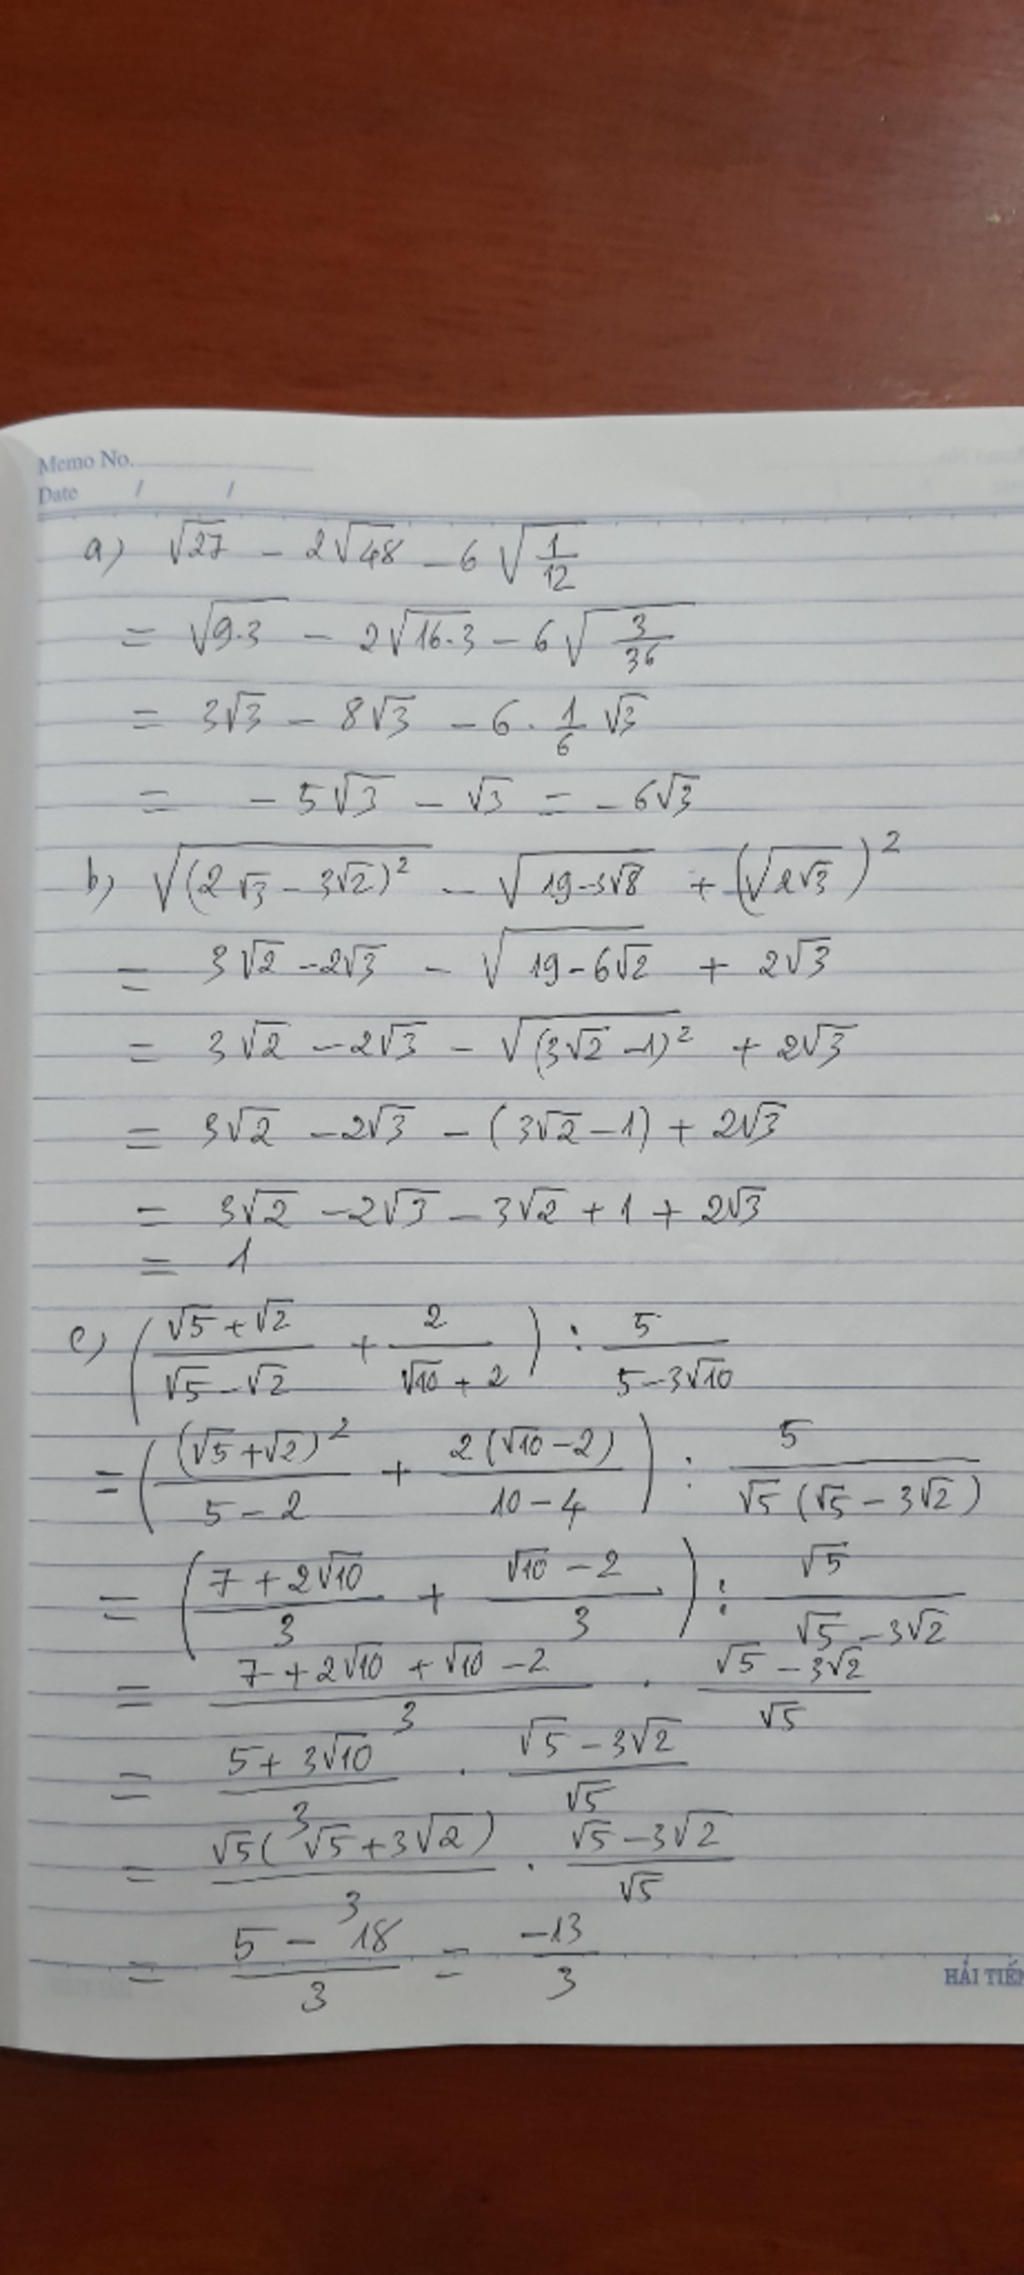 Memo No.
Date / /
a) √27 - 2√48 - 6√(1/12)
= √(9.3) - 2√(16.3) - 6√(3/36)
= 3√3 - 8√3 - 6 . 1/6 √3
= - 5√3 - √3 = - 6√3
b) √((2√3 - 3√2)²) - √(19-3√8) + (√(2√3))²
= 3√2 - 2√3 - √(19-6√2) + 2√3
= 3√2 - 2√3 - √((3√2 - 1)²) + 2√3
= 3√2 - 2√3 - (3√2 - 1) + 2√3
= 3√2 - 2√3 - 3√2 + 1 + 2√3
= 1
c) ((√5 + √2)/(√5 - √2) + 2/(√10 + 2)) : 5/(5-3√10)
= ((√5 + √2)²/(5 - 2) + 2(√10 - 2)/(10 - 4)) : 5/(√5 (√5 - 3√2))
= ((7 + 2√10)/3 + (√10 - 2)/3) : √5/(√5 - 3√2)
= (7 + 2√10 + √10 - 2)/3 . (√5 - 3√2)/√5
= (5 + 3√10)/3 . (√5 - 3√2)/√5
= √5(√5 + 3√2)/3 . (√5 - 3√2)/√5
= (5 - 18)/3 = -13/3
HẢI TIẾN